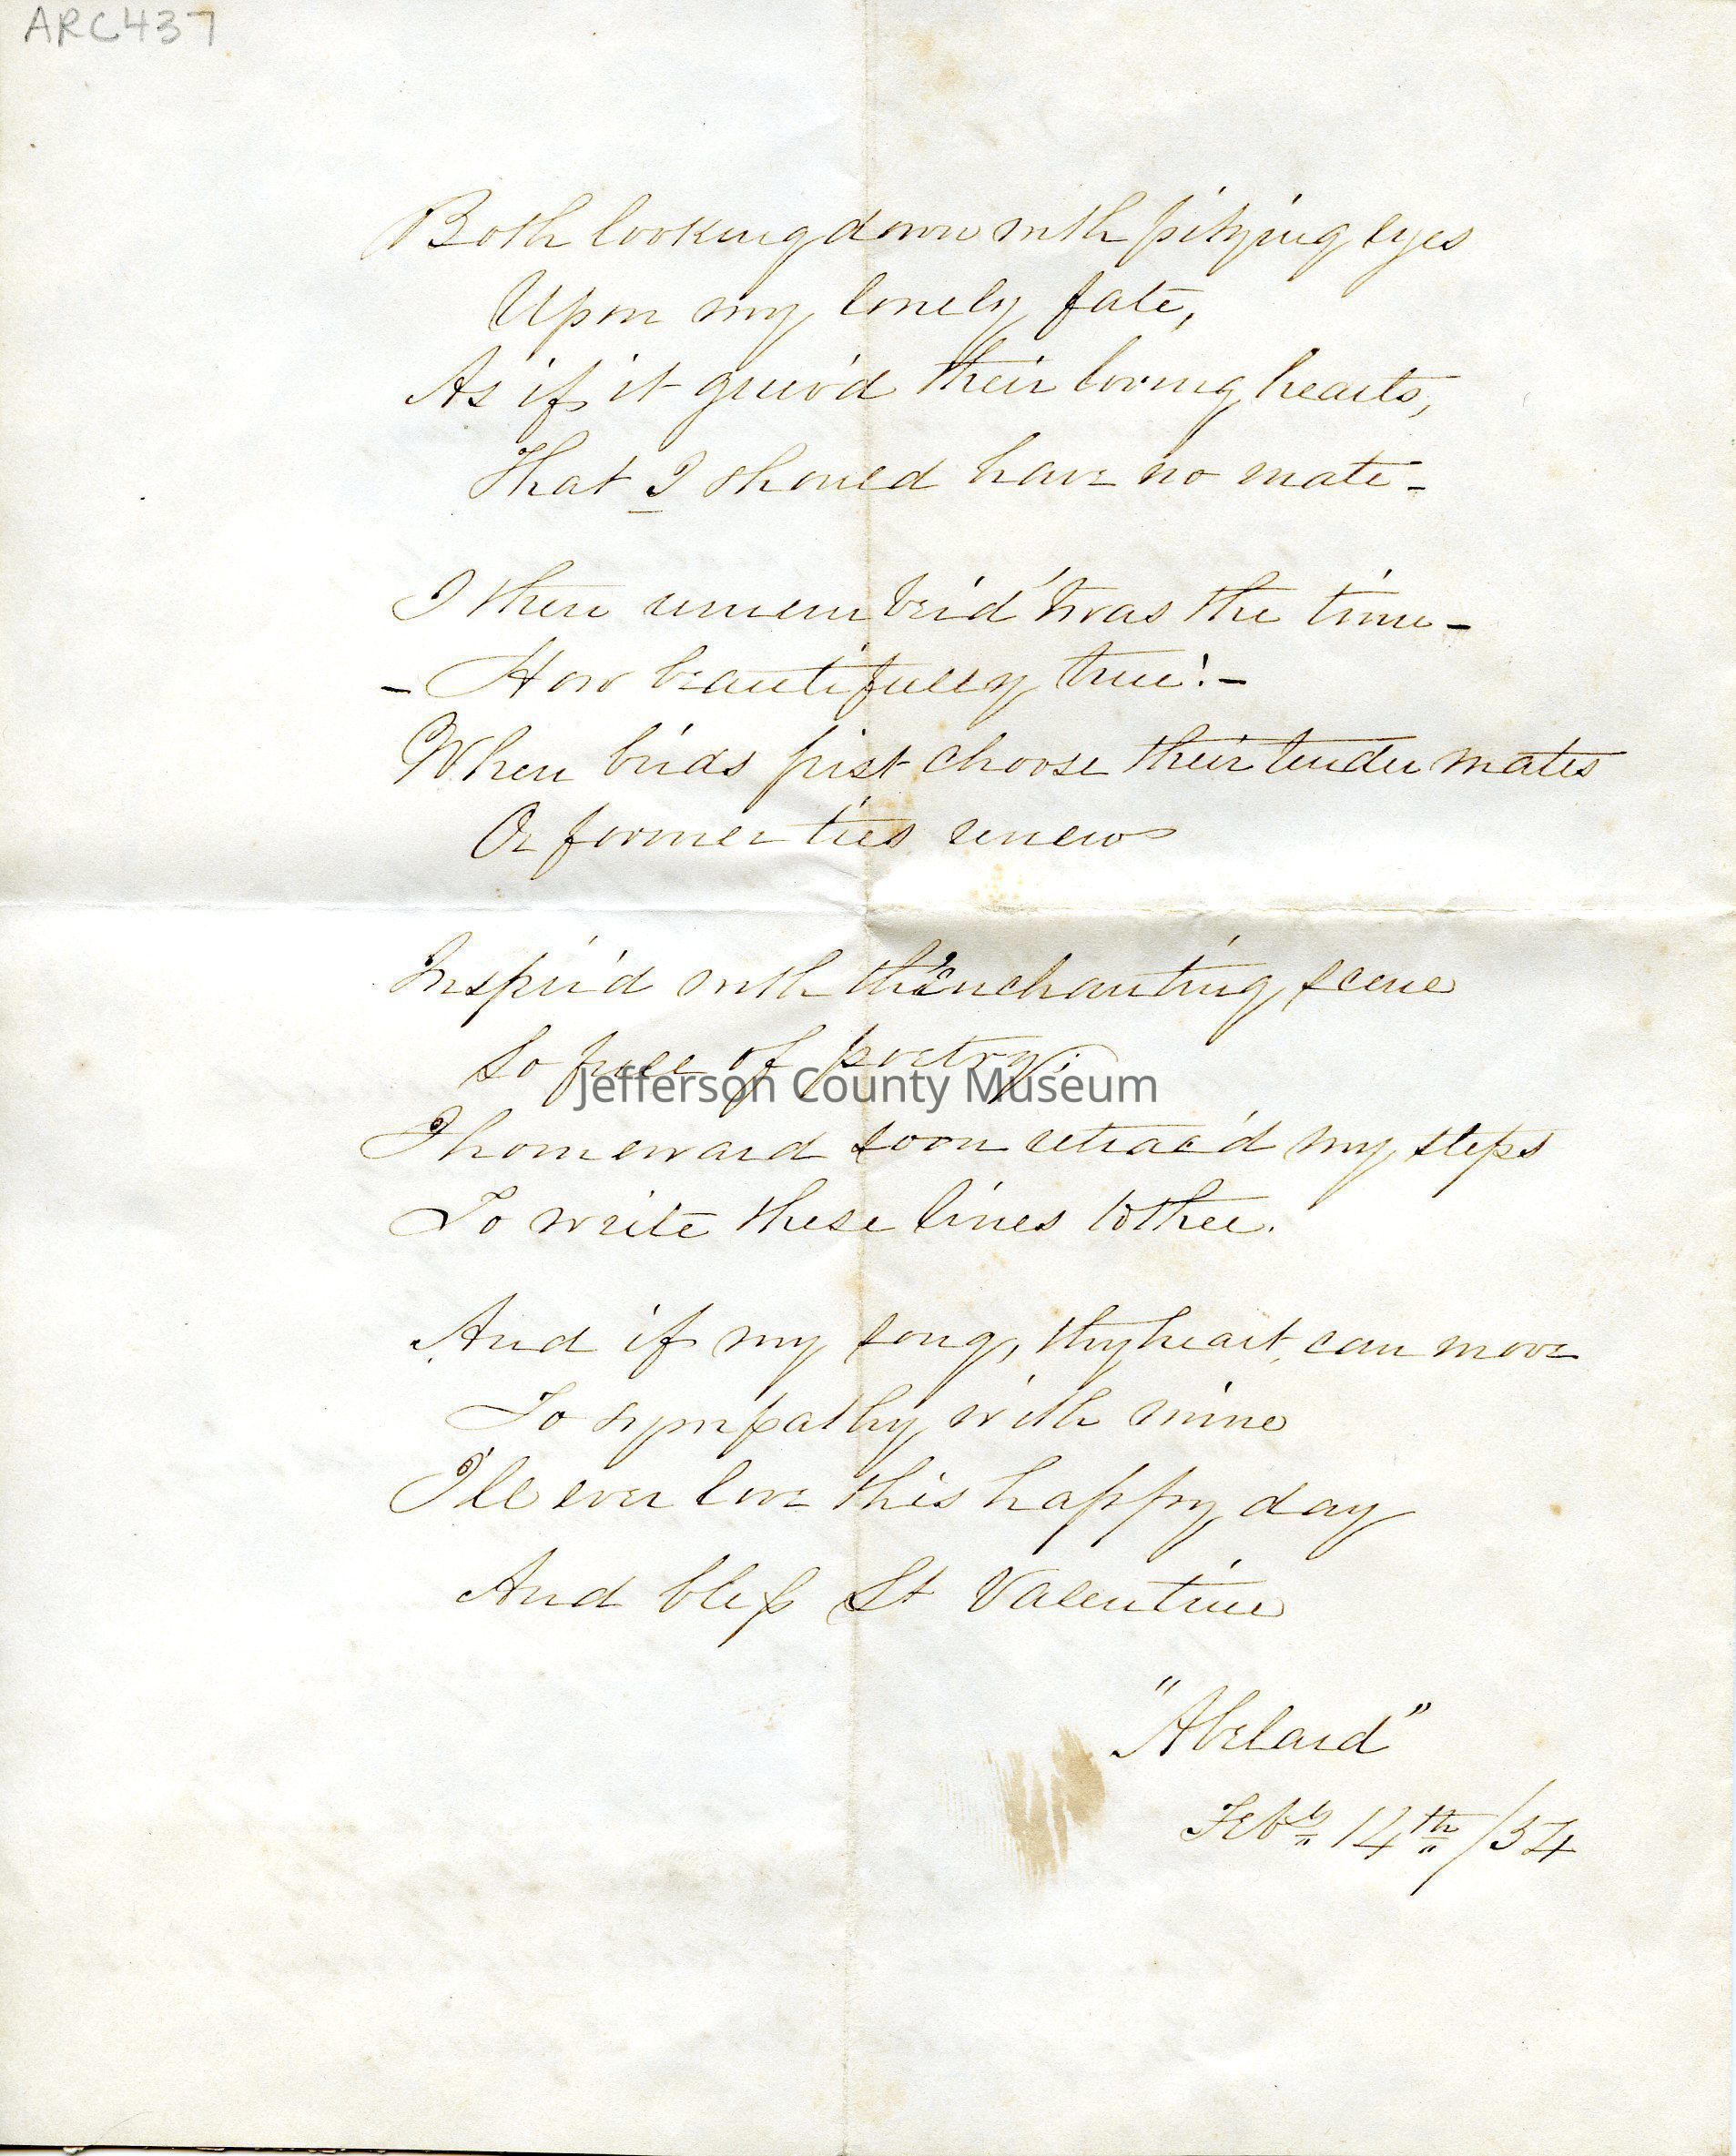 ARC437
Both looking down with pitying eyes
Upon my lonely fate,
As if it griev'd their loving hearts,
That I should have no mate -
I then rememberid 'twas the time -
- How beautifully true! -
When birds first choose their tender mates
Or former ties renew
Inspir'd with th'enchanting scene
So full of poetry;
Jefferson County Museum
I homeward soon retrac'd my steps
To write these lines to thee.
And if my song, thy heart can move
To sympathy with mine
I'll ever love this happy day
And bleſs St Valentine
"Abelard"
Feby 14th /34